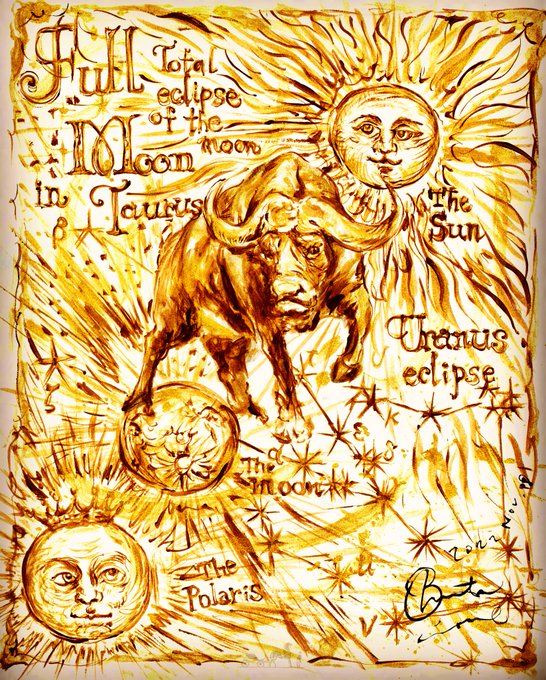 Full
Total
eclipse
of the
moon
Moon
in Taurus
The
Sun
Uranus
eclipse
The
moon
The
Polaris
2022 Nov